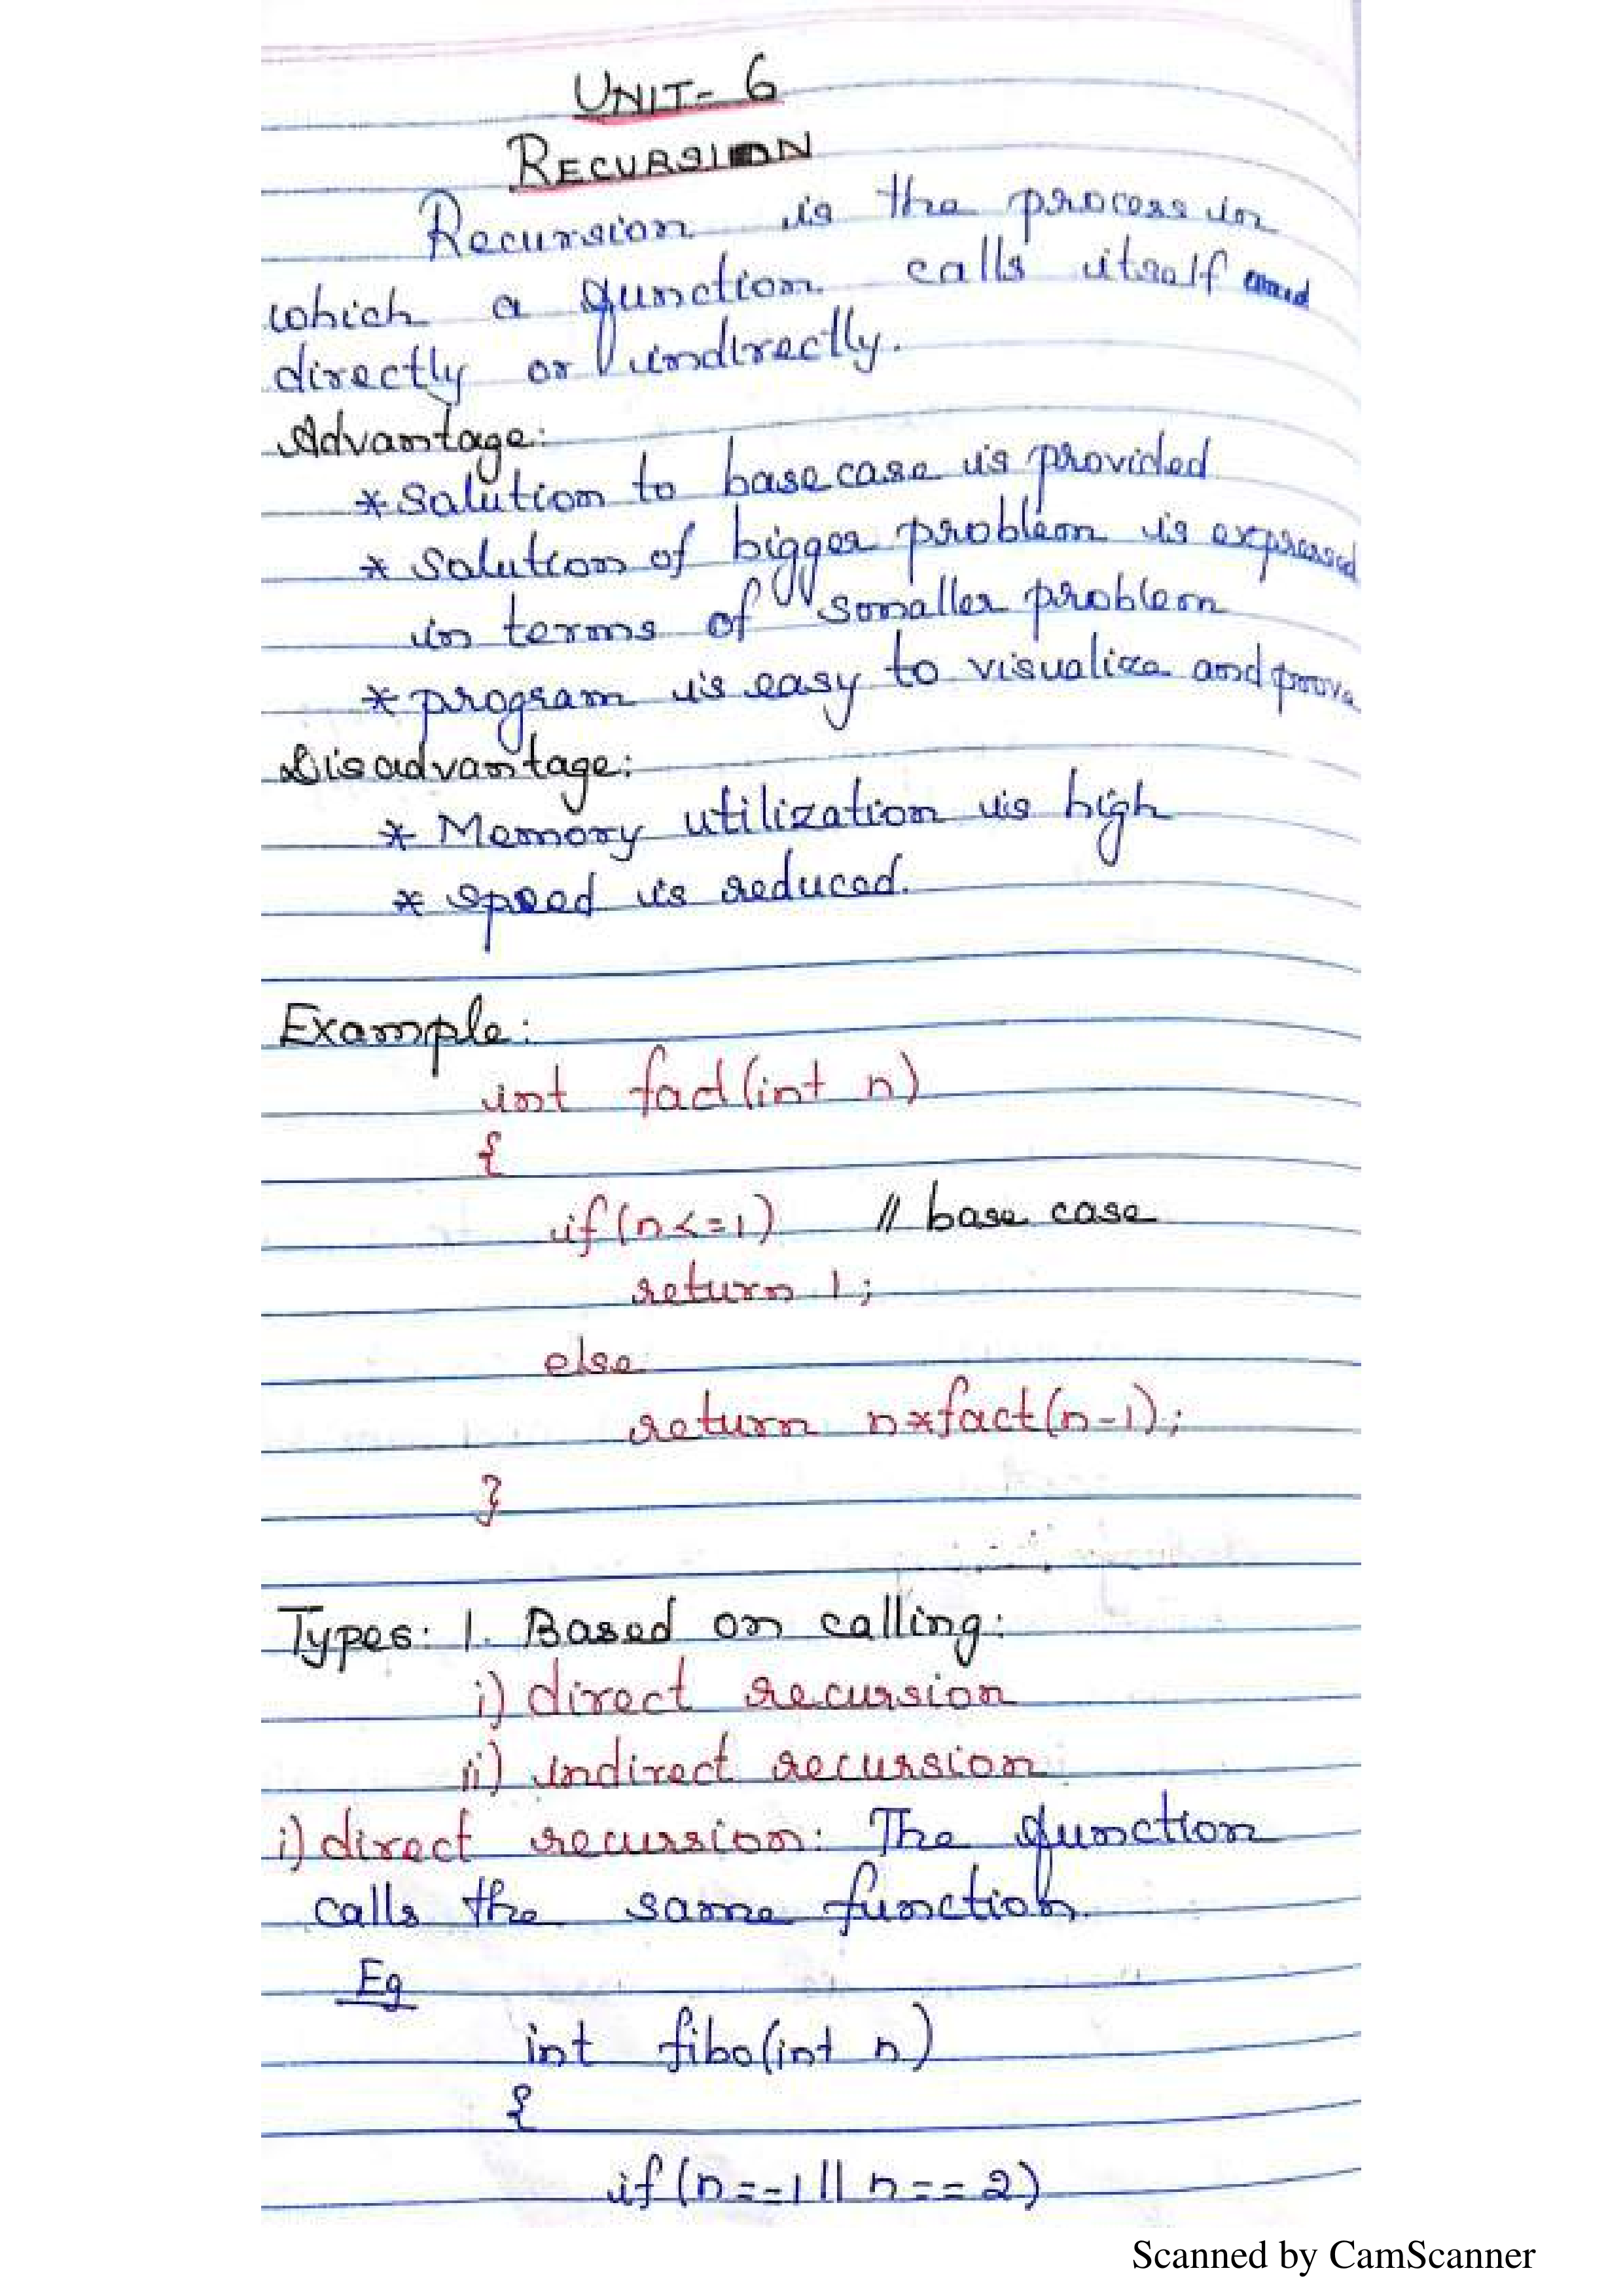 UNIT- 6
RECURSION
Recursion is the process in
which a function calls itself
directly or indirectly.
Advantage:
* Solution to base case is provided
* solution of bigger problem is expressed
in terms of smaller problem
* program is easy to visualize and prove
Disadvantage:
* Memory utilization is high
* speed is reduced.
Example:
int fact(int n)
{
if(n<=1) // base case
return 1;
else
return n*fact(n-1);
}
Types: 1. Based on calling:
i) direct recursion
ii) indirect recursion
i) direct recursion: The function
calls the same function.
Eg
int fibo(int n)
{
if(n==1||n==2)
Scanned by CamScanner